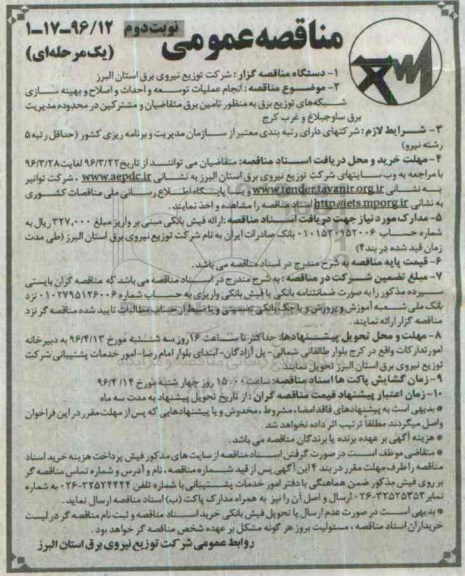 نوبت دوم
۱-۱۷-۹۶/۱۲
مناقصه عمومی
(یک مرحله‌ای)
۱- دستگاه مناقصه گزار: شرکت توزیع نیروی برق استان البرز
۲- موضوع مناقصه: انجام عملیات توسعه و احداث و اصلاح و بهینه سازی
شبکه‌های توزیع برق به منظور تامین برق متقاضیان و مشترکین در محدوده مدیریت
برق ساوجبلاغ و غرب کرج
۳- شرایط لازم: شرکتهای دارای رتبه بندی معتبر از سازمان مدیریت و برنامه ریزی کشور (حداقل رتبه ۵
رشته نیرو)
۴- مهلت خرید و محل دریافت اسناد مناقصه: متقاضیان می توانند از تاریخ ۹۶/۳/۲۲ لغایت ۹۶/۳/۲۸
با مراجعه به وب سایتهای شرکت توزیع نیروی برق استان البرز به نشانی www.aepdc.ir ، شرکت توانیر
به نشانی www.tender.tavanir.org.ir و یا پایگاه اطلاع رسانی ملی مناقصات کشوری
به نشانی http://iets.mporg.ir اسناد مناقصه را مشاهده و اخذ نمایند.
۵- مدارک مورد نیاز جهت دریافت اسناد مناقصه: ارائه فیش بانکی مبنی بر واریز مبلغ ۲۲۷,۰۰۰ ریال به
شماره حساب ۰۱۰۱۵۲۰۱۵۲۰۰۶ بانک صادرات ایران به نام شرکت توزیع نیروی برق استان البرز (طی مدت
زمان قید شده در بند ۴)
۶- قیمت پایه مناقصه به شرح مندرج در اسناد مناقصه می باشد.
۷- مبلغ تضمین شرکت در مناقصه: به شرح مندرج در اسناد مناقصه می باشد که مناقصه گران بایستی
سپرده مذکور را به صورت ضمانتنامه بانکی یا فیش بانکی واریزی به حساب شماره ۰۱۰۲۷۹۵۱۲۶۰۰۶ نزد
بانک ملی شعبه آموزش و پرورش و یا چک بانکی تضمینی و یا ضبط از حساب مطالبات تایید شده مناقصه گر نزد
مناقصه گزار ارائه نمایند.
۸- مهلت و محل تحویل پیشنهادها: حداکثر تا ساعت ۱۶ روز سه شنبه مورخ ۹۶/۴/۱۳ به دبیرخانه
امور تدارکات واقع در کرج بلوار طالقانی شمالی - پل آزادگان - ابتدای بلوار امام رضا - امور خدمات پشتیبانی شرکت
توزیع نیروی برق استان البرز تحویل نمایند
۹- زمان گشایش پاکت ها اسناد مناقصه: ساعت ۱۵:۰۰ روز چهار شنبه مورخ ۹۶/۴/۱۴
۱۰- زمان اعتبار پیشنهاد قیمت مناقصه گران: از تاریخ تحویل پیشنهاد به مدت سه ماه
* بدیهی است به پیشنهادهای فاقد امضا، مشروط، مخدوش و یا پیشنهادهایی که پس از مهلت مقرر در این فراخوان
واصل میگردند مطلقاً ترتیب اثر داده نخواهد شد.
* هزینه آگهی بر عهده برنده یا برندگان مناقصه می باشد.
* متقاضی موظف است در صورت گرفتن اسناد مناقصه از سایت های مذکور فیش پرداخت هزینه خرید اسناد
مناقصه را ظرف مهلت مقرر در بند ۴ این آگهی پس از قید شماره مناقصه، نام و آدرس و شماره تماس مناقصه گر
بر روی فیش مذکور ضمن هماهنگی با دفتر امور خدمات پشتیبانی با شماره تلفن ۳۲۵۲۴۴۴۴-۰۲۶ به شماره
نمابر ۳۲۵۲۵۳۵۳-۰۲۶ ارسال و اصل آن را نیز به همراه مدارک پاکت (ب) اسناد مناقصه ارسال نماید.
* بدیهی است در صورت عدم ارسال یا تحویل فیش بانکی خرید اسناد مناقصه و ثبت نام مناقصه گر در لیست
خریداران اسناد مناقصه، مسئولیت بروز هر گونه مشکل بر عهده شخص مناقصه گر خواهد بود.
روابط عمومی شرکت توزیع نیروی برق استان البرز